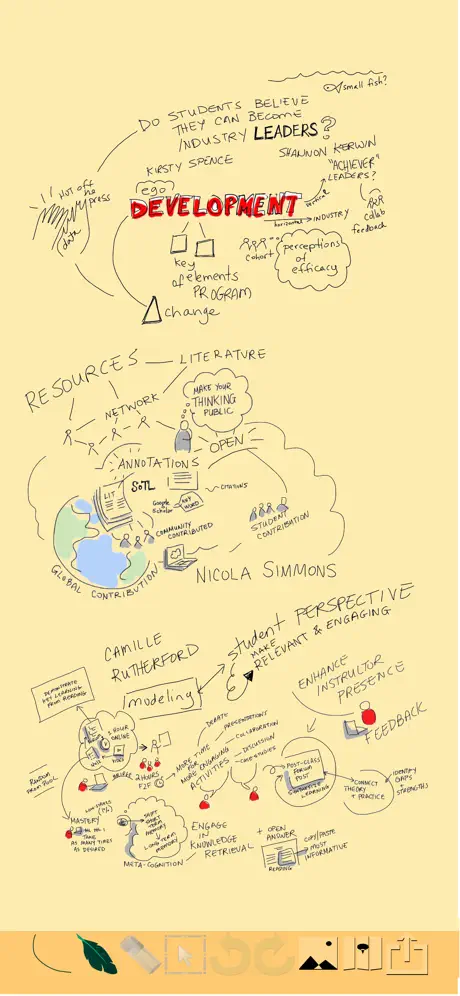 small fish?
DO STUDENTS BELIEVE
THEY CAN BECOME
INDUSTRY LEADERS?
KIRSTY SPENCE
SHANNON KERWIN
"ACHIEVER"
LEADERS?
HOT OFF
the
press
data
ego
DEVELOPMENT
vertical
horizontal
INDUSTRY
collab
feedback
cohort
perceptions
of
efficacy
key
elements
of PROGRAM
change
RESOURCES
LITERATURE
NETWORK
MAKE YOUR
THINKING
PUBLIC
OPEN
ANNOTATIONS
LIT
SoTL
CITATIONS
Google
Scholar
KEY
WORD
COMMUNITY
CONTRIBUTED
STUDENT
CONTRIBUTION
GLOBAL CONTRIBUTION
NICOLA SIMMONS
CAMILLE
RUTHERFORD
student PERSPECTIVE
MAKE
RELEVANT & ENGAGING
modeling
ENHANCE
INSTRUCTOR
PRESENCE
FEEDBACK
DEMONSTRATE
KEY LEARNING
FROM READING
1 HOUR
ONLINE
2 HOURS
F2F
MORE TIME
FOR
MORE ENGAGING
ACTIVITIES
DEBATE
PRESENTATIONS
COLLABORATION
DISCUSSION
CASE STUDIES
POST-CLASS
FORUM
POST
LEARNING
CONNECT
THEORY
+ PRACTICE
IDENTIFY
GAPS
+
STRENGTHS
RANDOM
FROM POOL
MASTERY
TAKE
AS MANY TIMES
AS DESIRED
SHORT
TERM
MEMORY
LONG TERM
MEMORY
META-COGNITION
ENGAGE
IN
KNOWLEDGE
RETRIEVAL
+ OPEN
ANSWER
READING
COPY/PASTE
MOST
INFORMATIVE